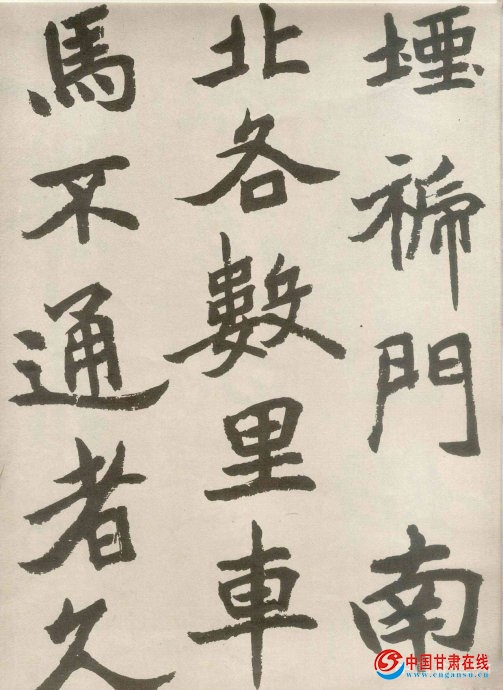 堙門南
北各數里車
馬不通者久
中国甘肃在线
www.cngansu.cn